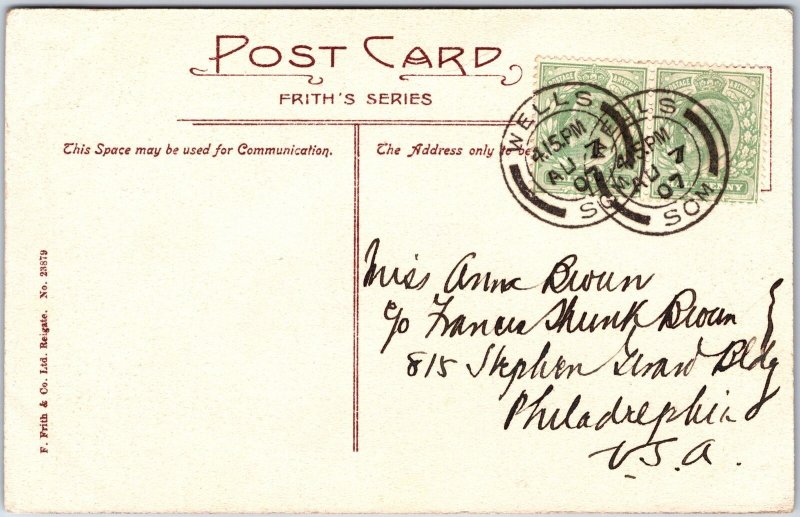 POST CARD
FRITH'S SERIES
This Space may be used for Communication.
The Address only to be
POSTAGE
POSTAGE
PENNY
WELLS
4.15.PM
AU 7
07
SOM
WELLS
4.15.PM
AU 7
07
SOM
Miss Anne Brown
c/o Francis Shunk Brown
815 Stephen Girard Bldg
Philadelphia
U.S.A.
F. Frith & Co. Ltd. Reigate. No. 23879